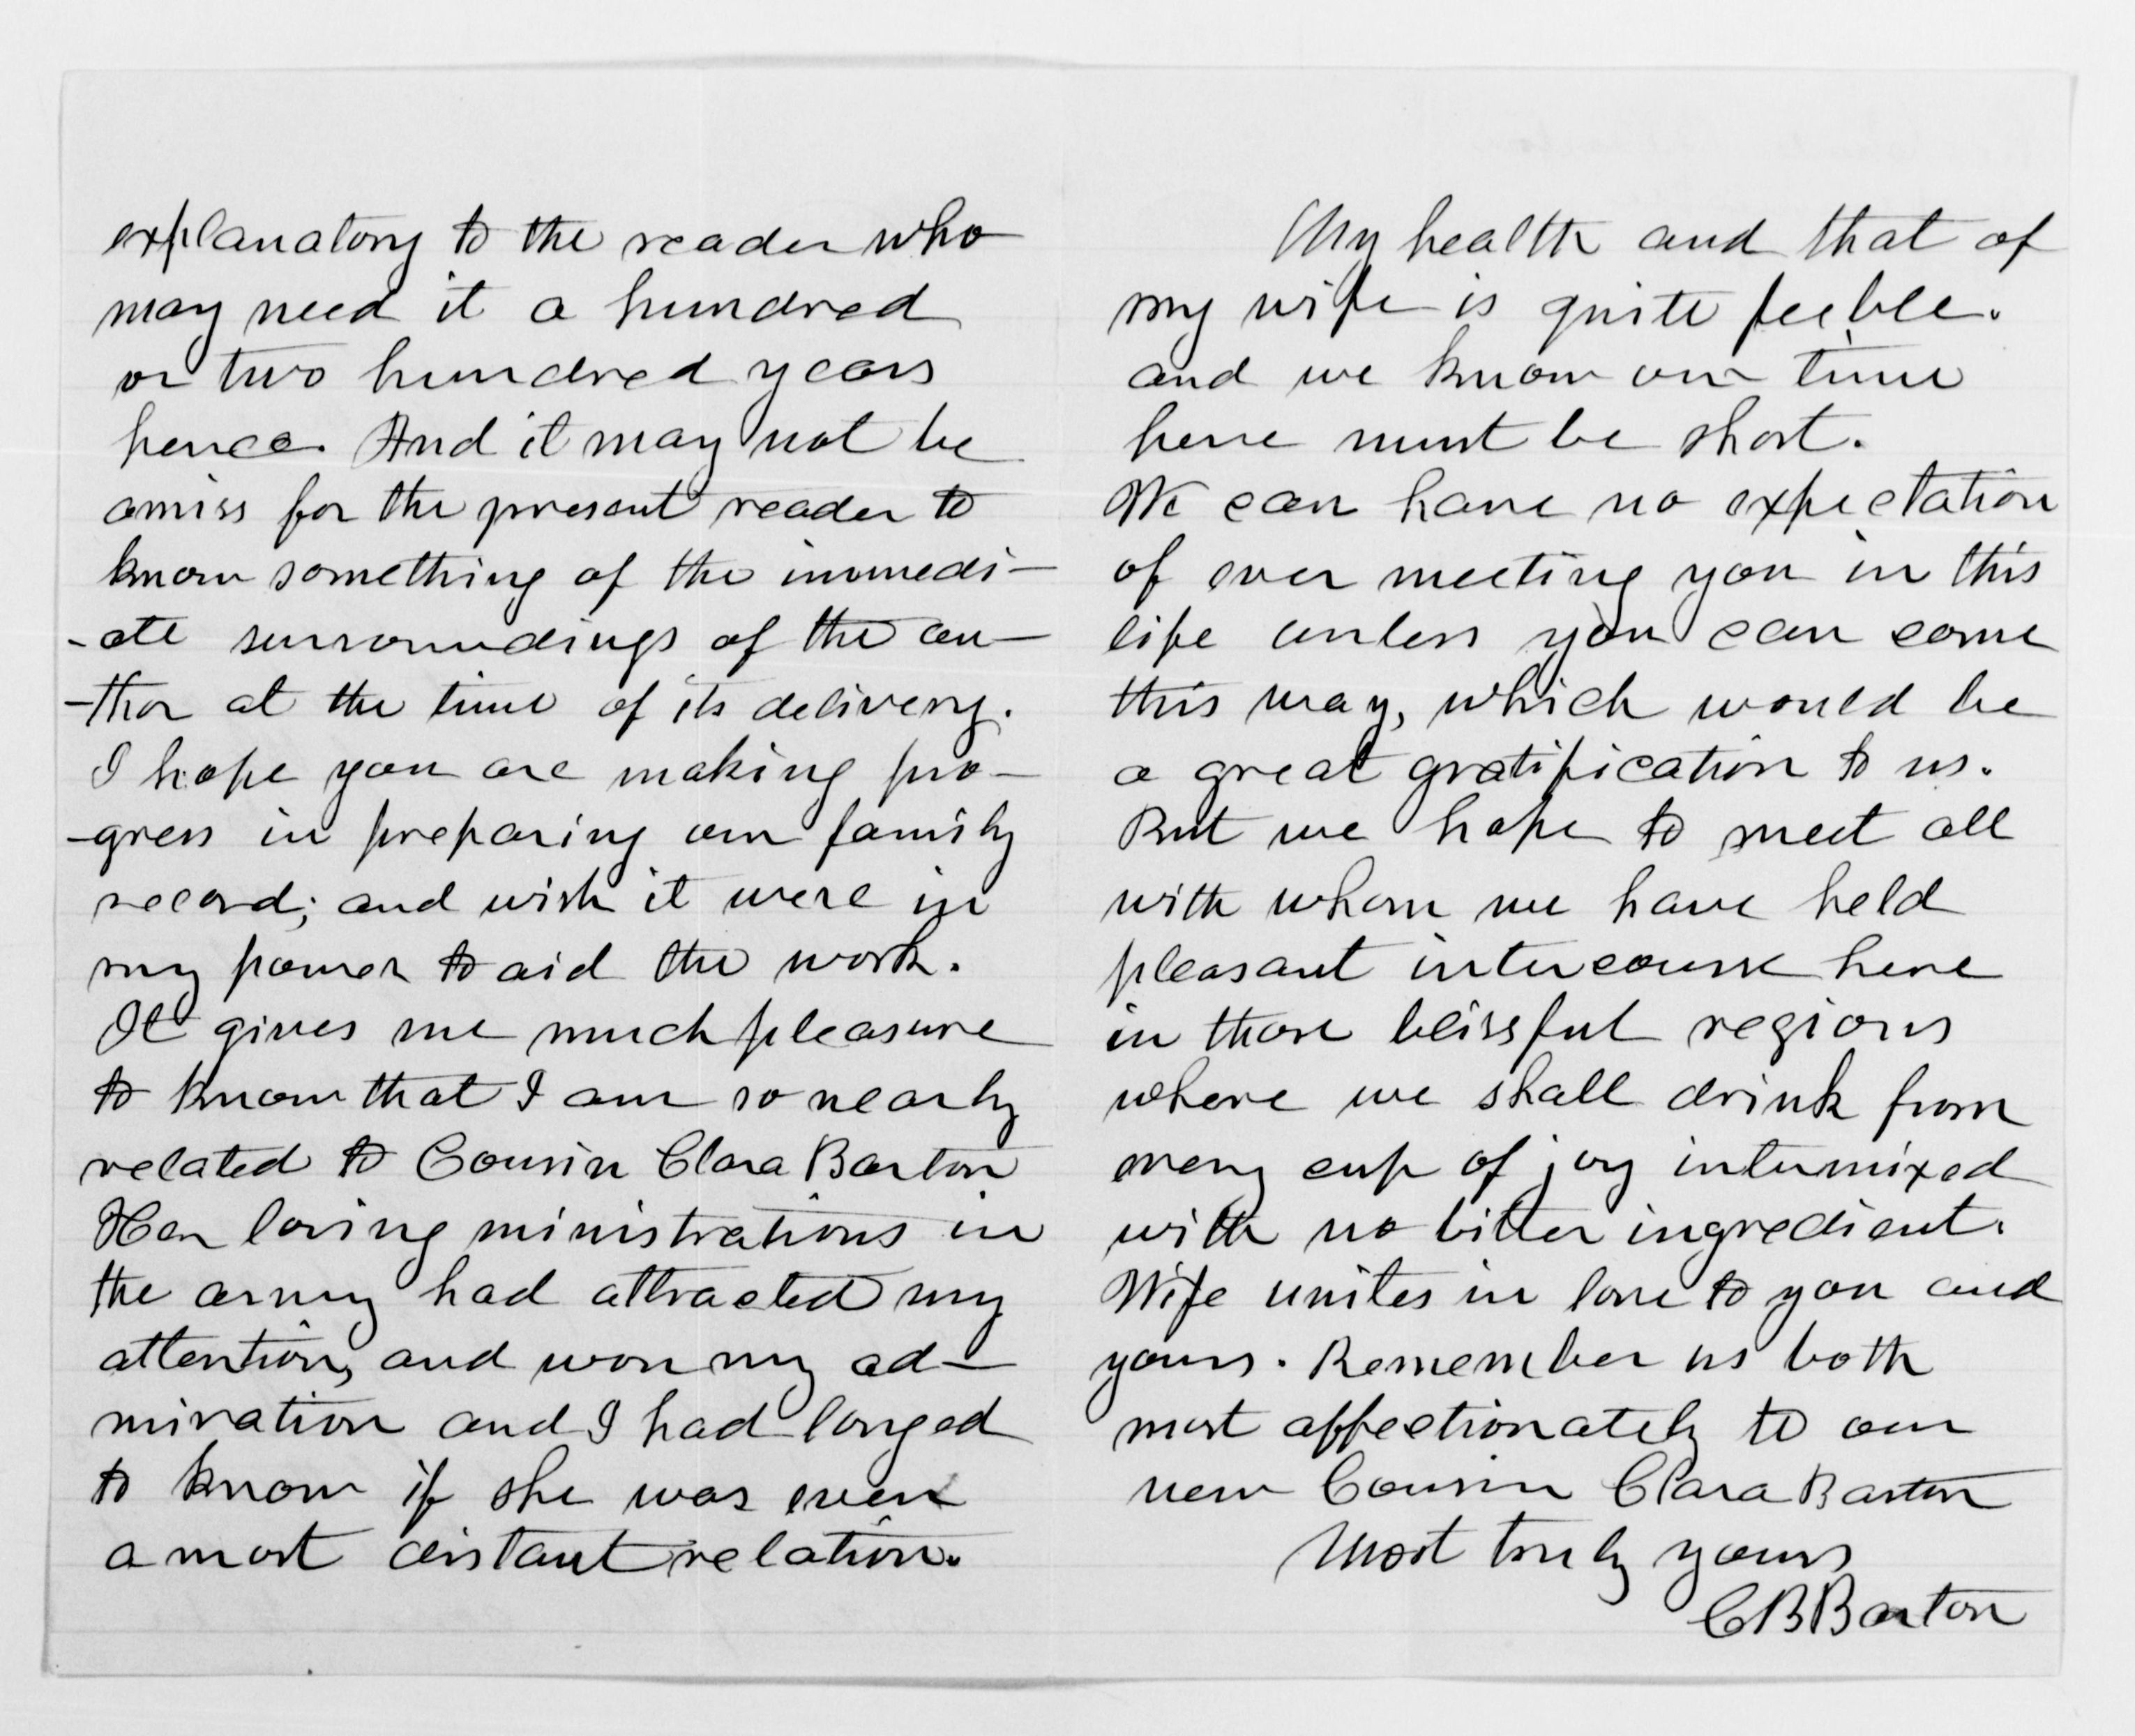 explanatory to the reader who
may need it a hundred
or two hundred years
hence. And it may not be
amiss for the present reader to
know something of the immedi-
-ate surroundings of the au-
-thor at the time of its delivery.
I hope you are making pro-
-gress in preparing our family
record; and wish it were in
my power to aid the work.
It gives me much pleasure
to know that I am so nearly
related to Cousin Clara Barton
Her loving ministrations in
the army had attracted my
attention, and won my ad-
miration and I had longed
to know if she was even
a most distant relation.
My health and that of
my wife is quite feeble.
and we know our time
here must be short.
We can have no expectation
of ever meeting you in this
life unless you can come
this way, which would be
a great gratification to us.
But we hope to meet all
with whom we have held
pleasant intercourse here
in those blissful regions
where we shall drink from
every cup of joy intermixed
with no bitter ingredient.
Wife unites in love to you and
yours. Remember us both
most affectionately to our
new Cousin Clara Barton
Most truly yours
C B Barton